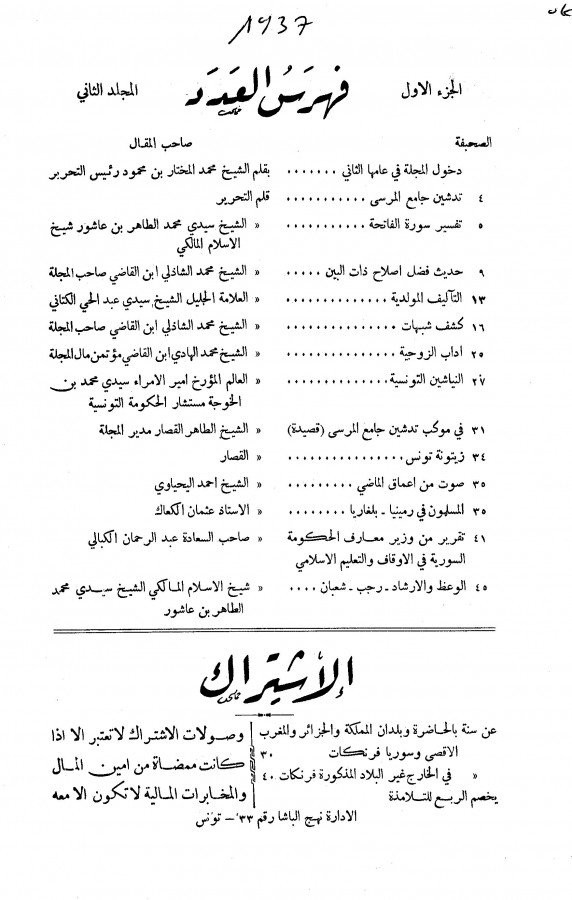 1937
الجزء الاول
فهرس العدد
المجلد الثاني
الصحيفة
صاحب المقال
دخول المجلة في عامها الثاني ....... بقلم الشيخ محمد المختار بن محمود رئيس التحرير
٤ تدشين جامع المرسى ........... قلم التحرير
٥ تفسير سورة الفاتحة ........... « الشيخ سيدي محمد الطاهر بن عاشور شيخ
الاسلام المالكي
٩ حديث فضل اصلاح ذات البين ..... « الشيخ محمد الشاذلي ابن القاضي صاحب المجلة
١٣ التآليف المولدية .............. « العلامة الجليل الشيخ سيدي عبد الحي الكتاني
١٦ كشف شبهات ................ « الشيخ محمد الشاذلي ابن القاضي صاحب المجلة
٢٥ اداب الزوجية ............... « الشيخ محمد الهادي ابن القاضي مؤتمن مال المجلة
٢٧ النياشين التونسية .............. « العالم المؤرخ امير الامراء سيدي محمد بن
الخوجة مستشار الحكومة التونسية
٣١ في موكب تدشين جامع المرسى (قصيدة) « الشيخ الطاهر القصار مدير المجلة
٣٤ زيتونة تونس ................ « القصار
٣٥ صوت من اعماق الماضي ......... « الشيخ احمد اليحياوي
٣٥ المسلمون في رمينيا - بلغاريا ........ « الاستاذ عثمان الكعاك
٤١ تقرير من وزير معارف الحكومة « صاحب السعادة عبد الرحمان الكيالي
السورية في الاوقاف والتعليم الاسلامي
٤٥ الوعظ والارشاد - رجب - شعبان .... « شيخ الاسلام المالكي الشيخ سيدي محمد
الطاهر بن عاشور
الاشتراك
عن سنة بالحاضرة وبلدان المملكة والجزائر والمغرب
الاقصى وسوريا فرنكات ٣٠
« في الخارج غير البلاد المذكورة فرنكات ٤٠
يخصم الربع للتلامذة
وصولات الاشتراك لا تعتبر الا اذا
كانت ممضاة من امين المال
والمخابرات المالية لا تكون الا معه
الادارة نهج الباشا رقم ٣٣ - تونس